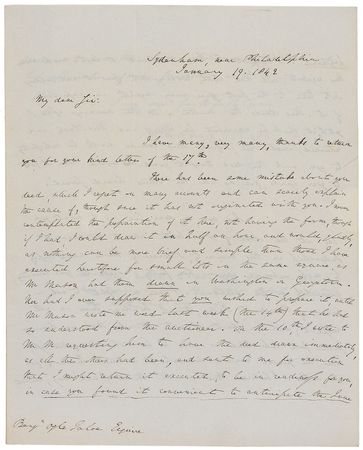 Sydenham, near Philadelphia
January 19. 1842
My dear Sir:
I have many, very many, thanks to return
you for your kind letter of the 17th.
There has been some mistake about your
deed, which I regret on many accounts and can scarcely explain
the cause of, though sure it has not originated with you. I never
contemplated the preparation of it here, not having the form though
if I had, I could draw it in half an hour, and would, gladly,
as nothing can be more brief and simple than those I have
executed heretofore for small lots in the same square as
Mr Mason had them drawn in Washington or Georgetown.
Nor had I ever supposed that you wished to prepare it, until
Mr Mason wrote me word last week (the 14th) that he had
so understood from the auctioneer. On the 10th, I wrote to
Mr M. requesting him to have the deed drawn immediately,
as all the others had been, and sent to me for execution
that I might return it executed, to be in readiness for you,
in case you found it convenient to anticipate the time
Benjn Ogle Tayloe Esquire